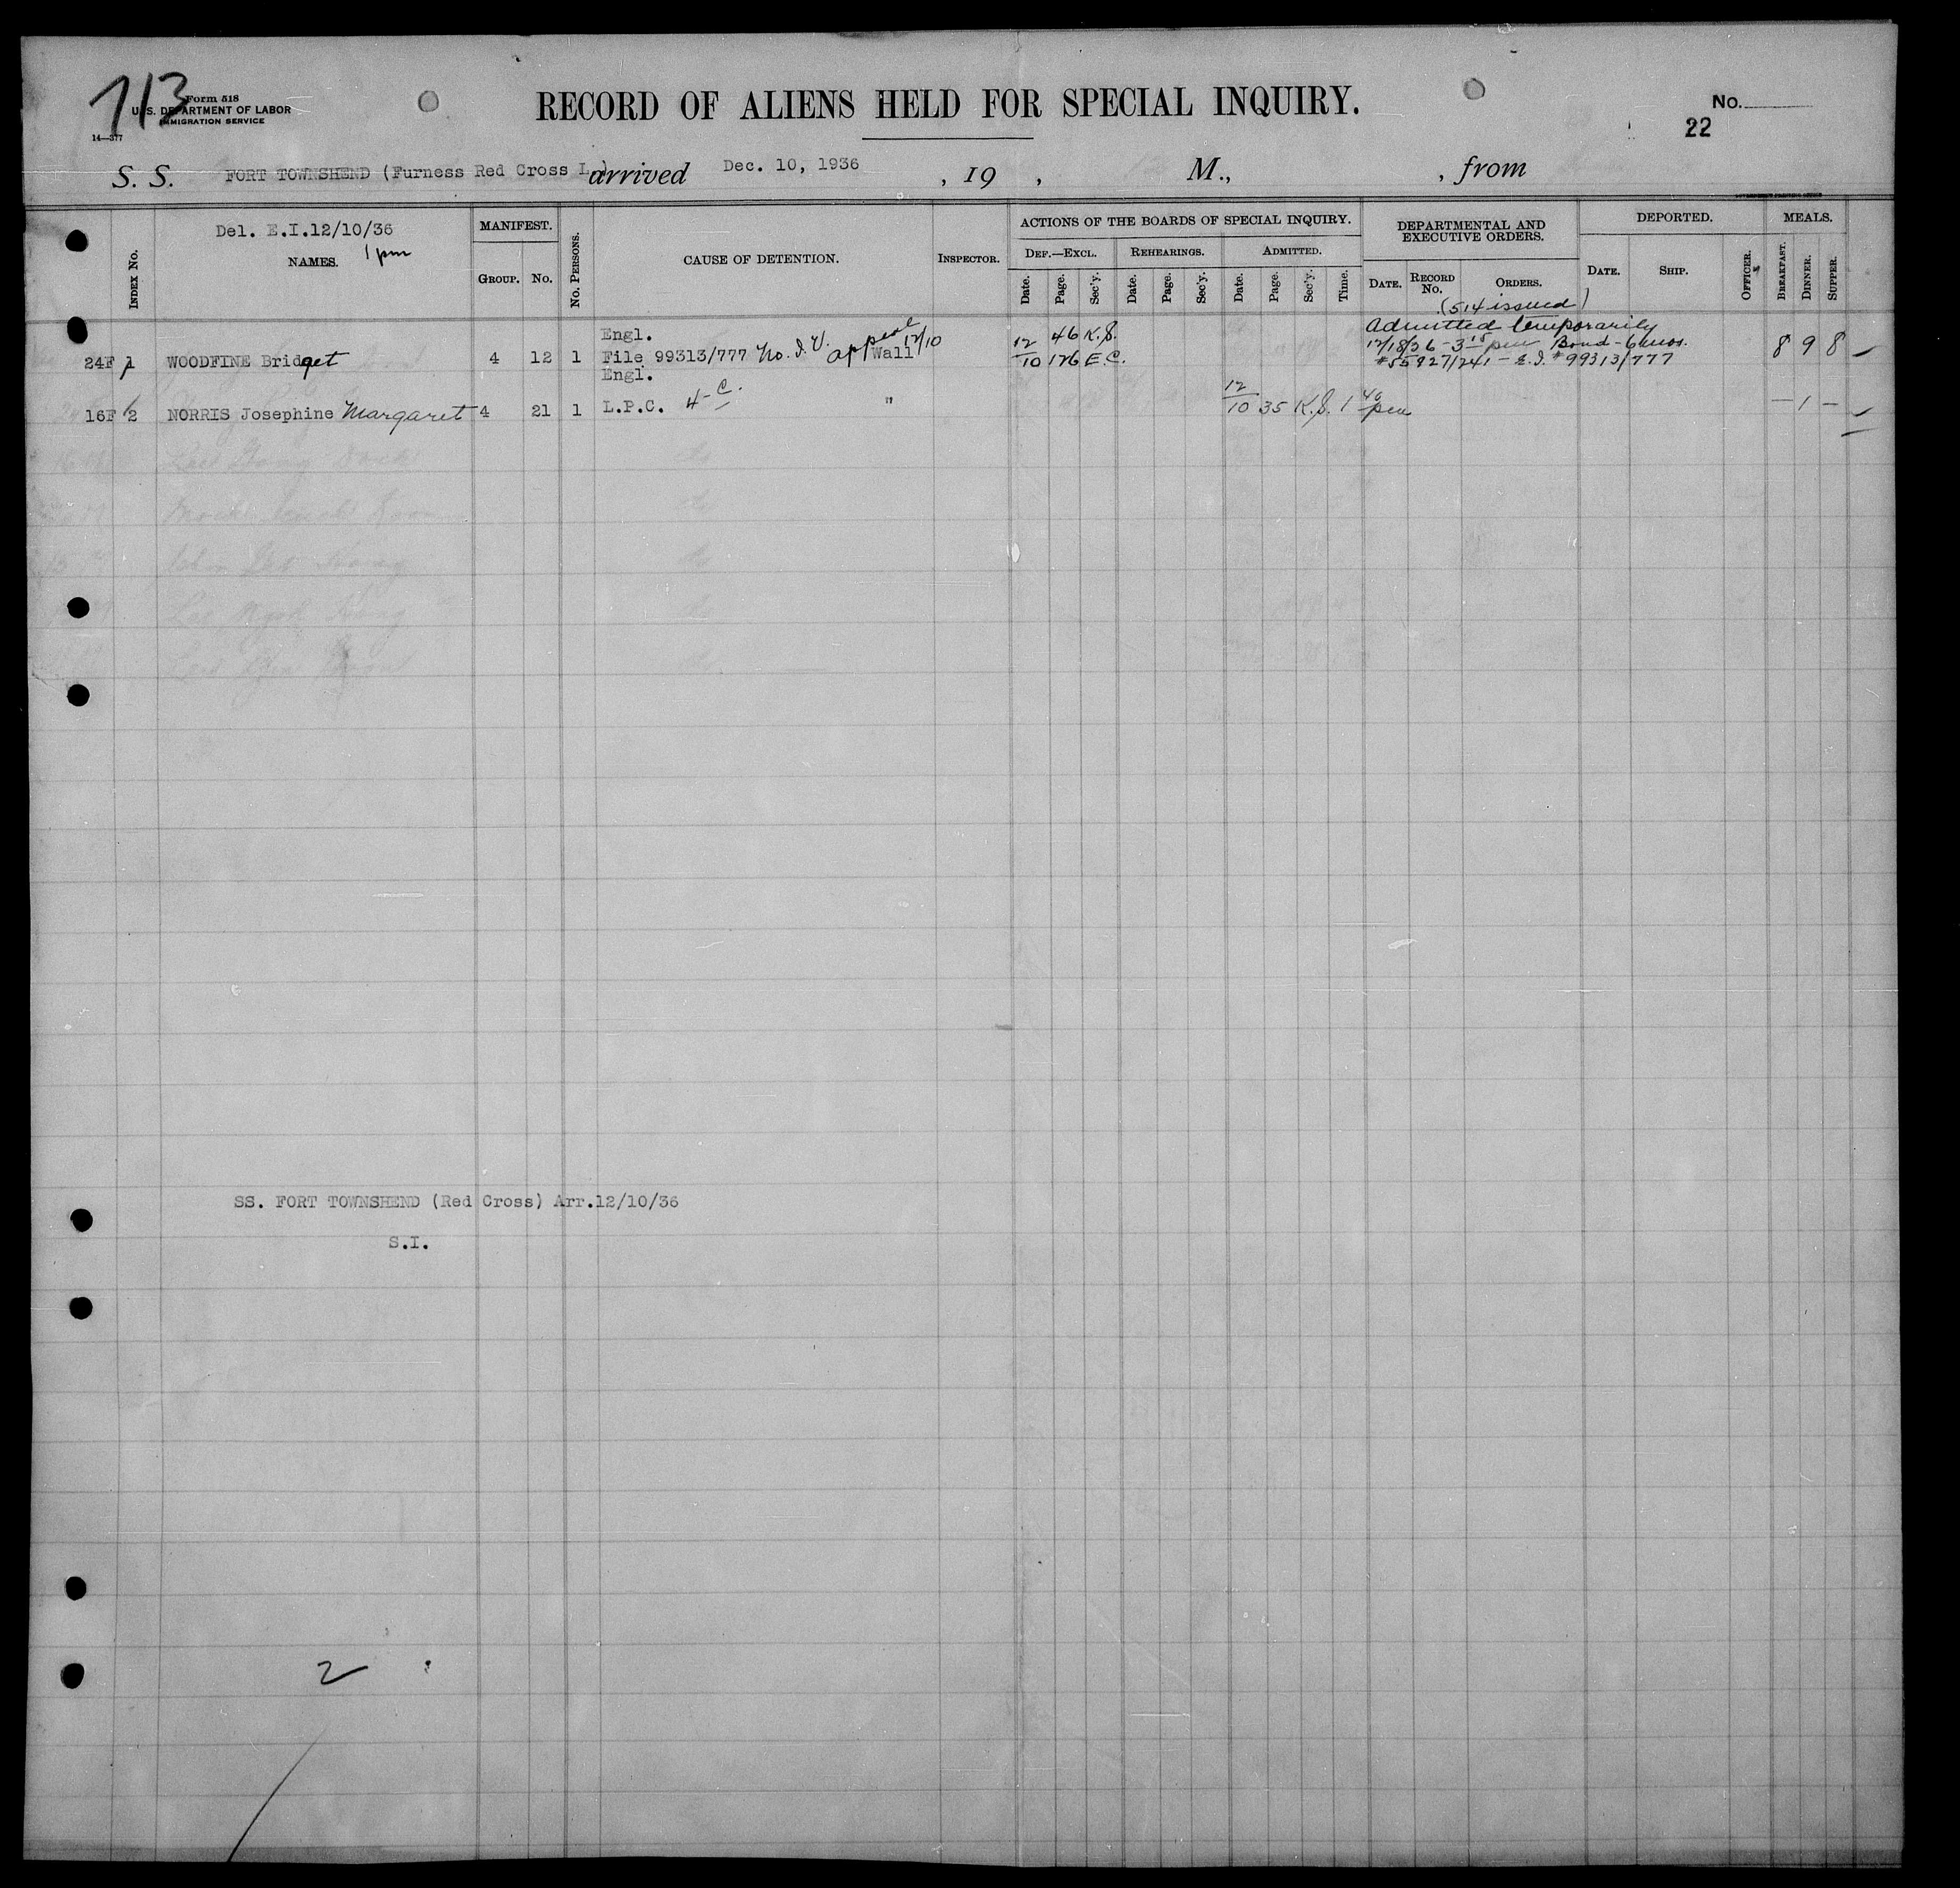 713
Form 518
U. S. DEPARTMENT OF LABOR
IMMIGRATION SERVICE
14—377
RECORD OF ALIENS HELD FOR SPECIAL INQUIRY.
No.
22
S. S. FORT TOWNSHEND (Furness Red Cross L.) arrived Dec. 10, 1936 , 19 , M., , from
Del. E.I.12/10/36
1 pm
INDEX No.
NAMES.
MANIFEST.
GROUP. No.
No. PERSONS.
CAUSE OF DETENTION.
INSPECTOR.
ACTIONS OF THE BOARDS OF SPECIAL INQUIRY.
DEF.—EXCL. REHEARINGS. ADMITTED.
Date. Page. Sec'y. Date. Page. Sec'y. Date. Page. Sec'y. Time.
DEPARTMENTAL AND EXECUTIVE ORDERS.
DATE. RECORD No. ORDERS.
DEPORTED.
DATE. SHIP.
OFFICER.
MEALS.
BREAKFAST. DINNER. SUPPER.
(514 issued)
Engl. appeal 12/10 46 K.S. Admitted temporarily
24F 1 WOODFINE Bridget 4 12 1 File 99313/777 No. I. V. Wall 12/10 176 E.C. 12/18/36 - 3 15 pm Bond - 6 mos. 8 9 8
#55927/241 - E.I. #99313/777
Engl.
16F 2 NORRIS Josephine Margaret 4 21 1 L.P.C. 4-C. " 12/10 35 K.S. 1 40 pm — 1 —
SS. FORT TOWNSHEND (Red Cross) Arr.12/10/36
S.I.
2